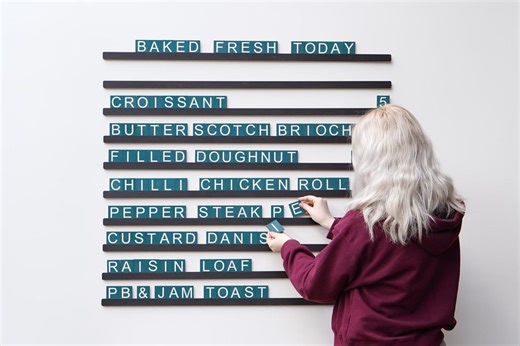 BAKED FRESH TODAY
CROISSANT 5
BUTTERSCOTCH BRIOCH
FILLED DOUGHNUT
CHILLI CHICKEN ROLL
PEPPER STEAK PE
CUSTARD DANIS
RAISIN LOAF
PB&JAM TOAST